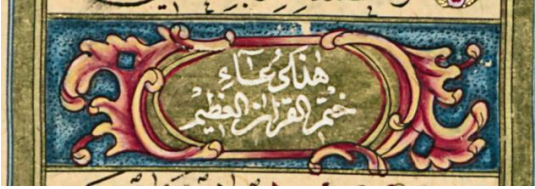 هذا دعاء
ختم القرآن العظيم